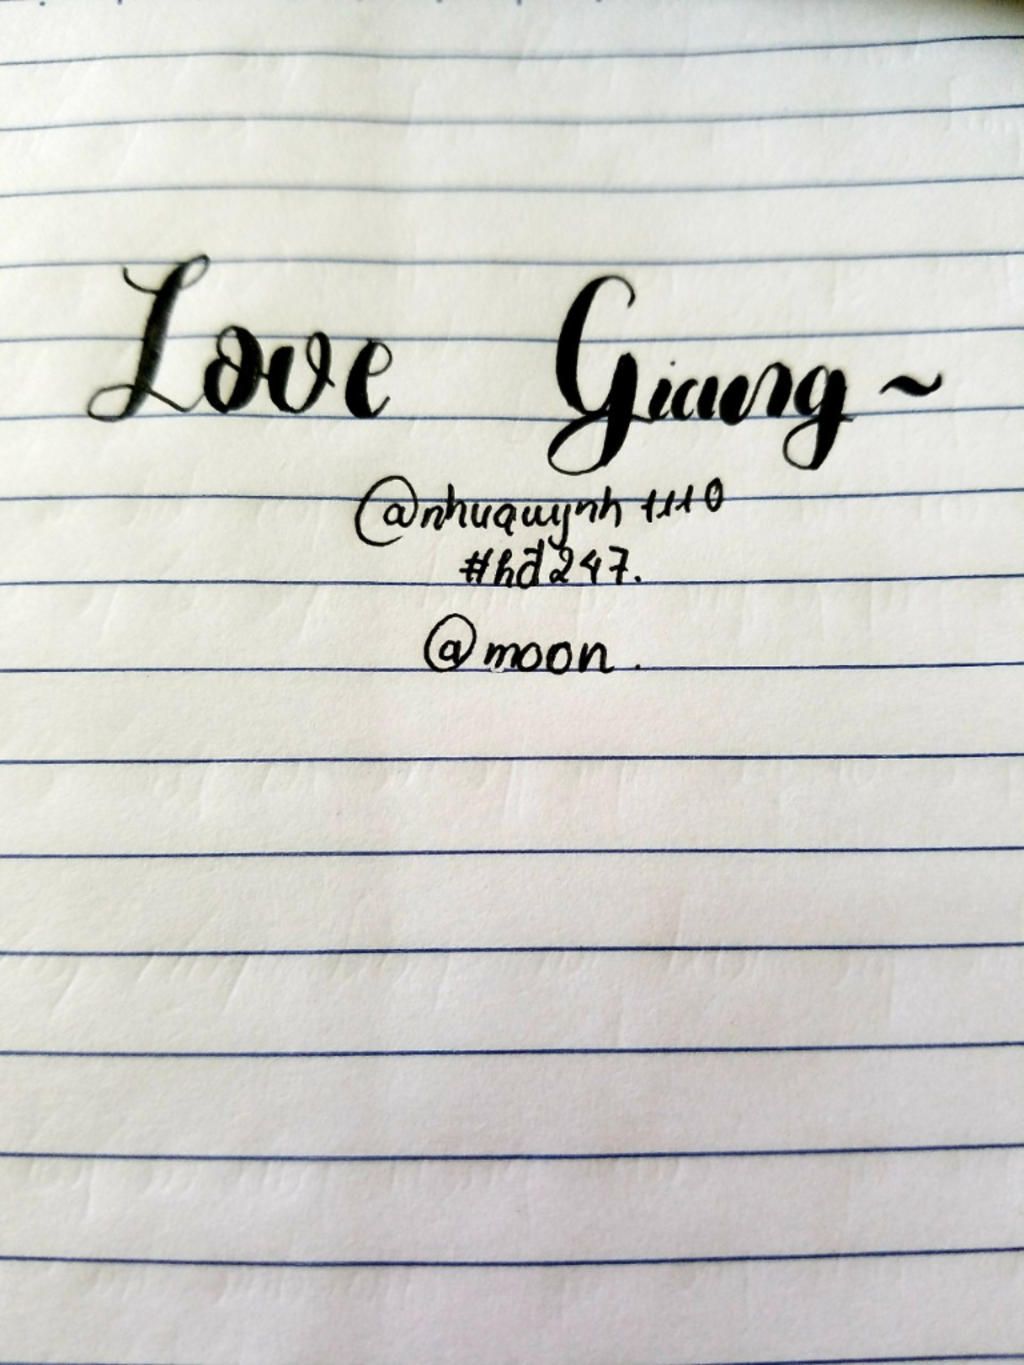 Love Giang ~
@nhuquynh1110
#hđ247.
@moon.